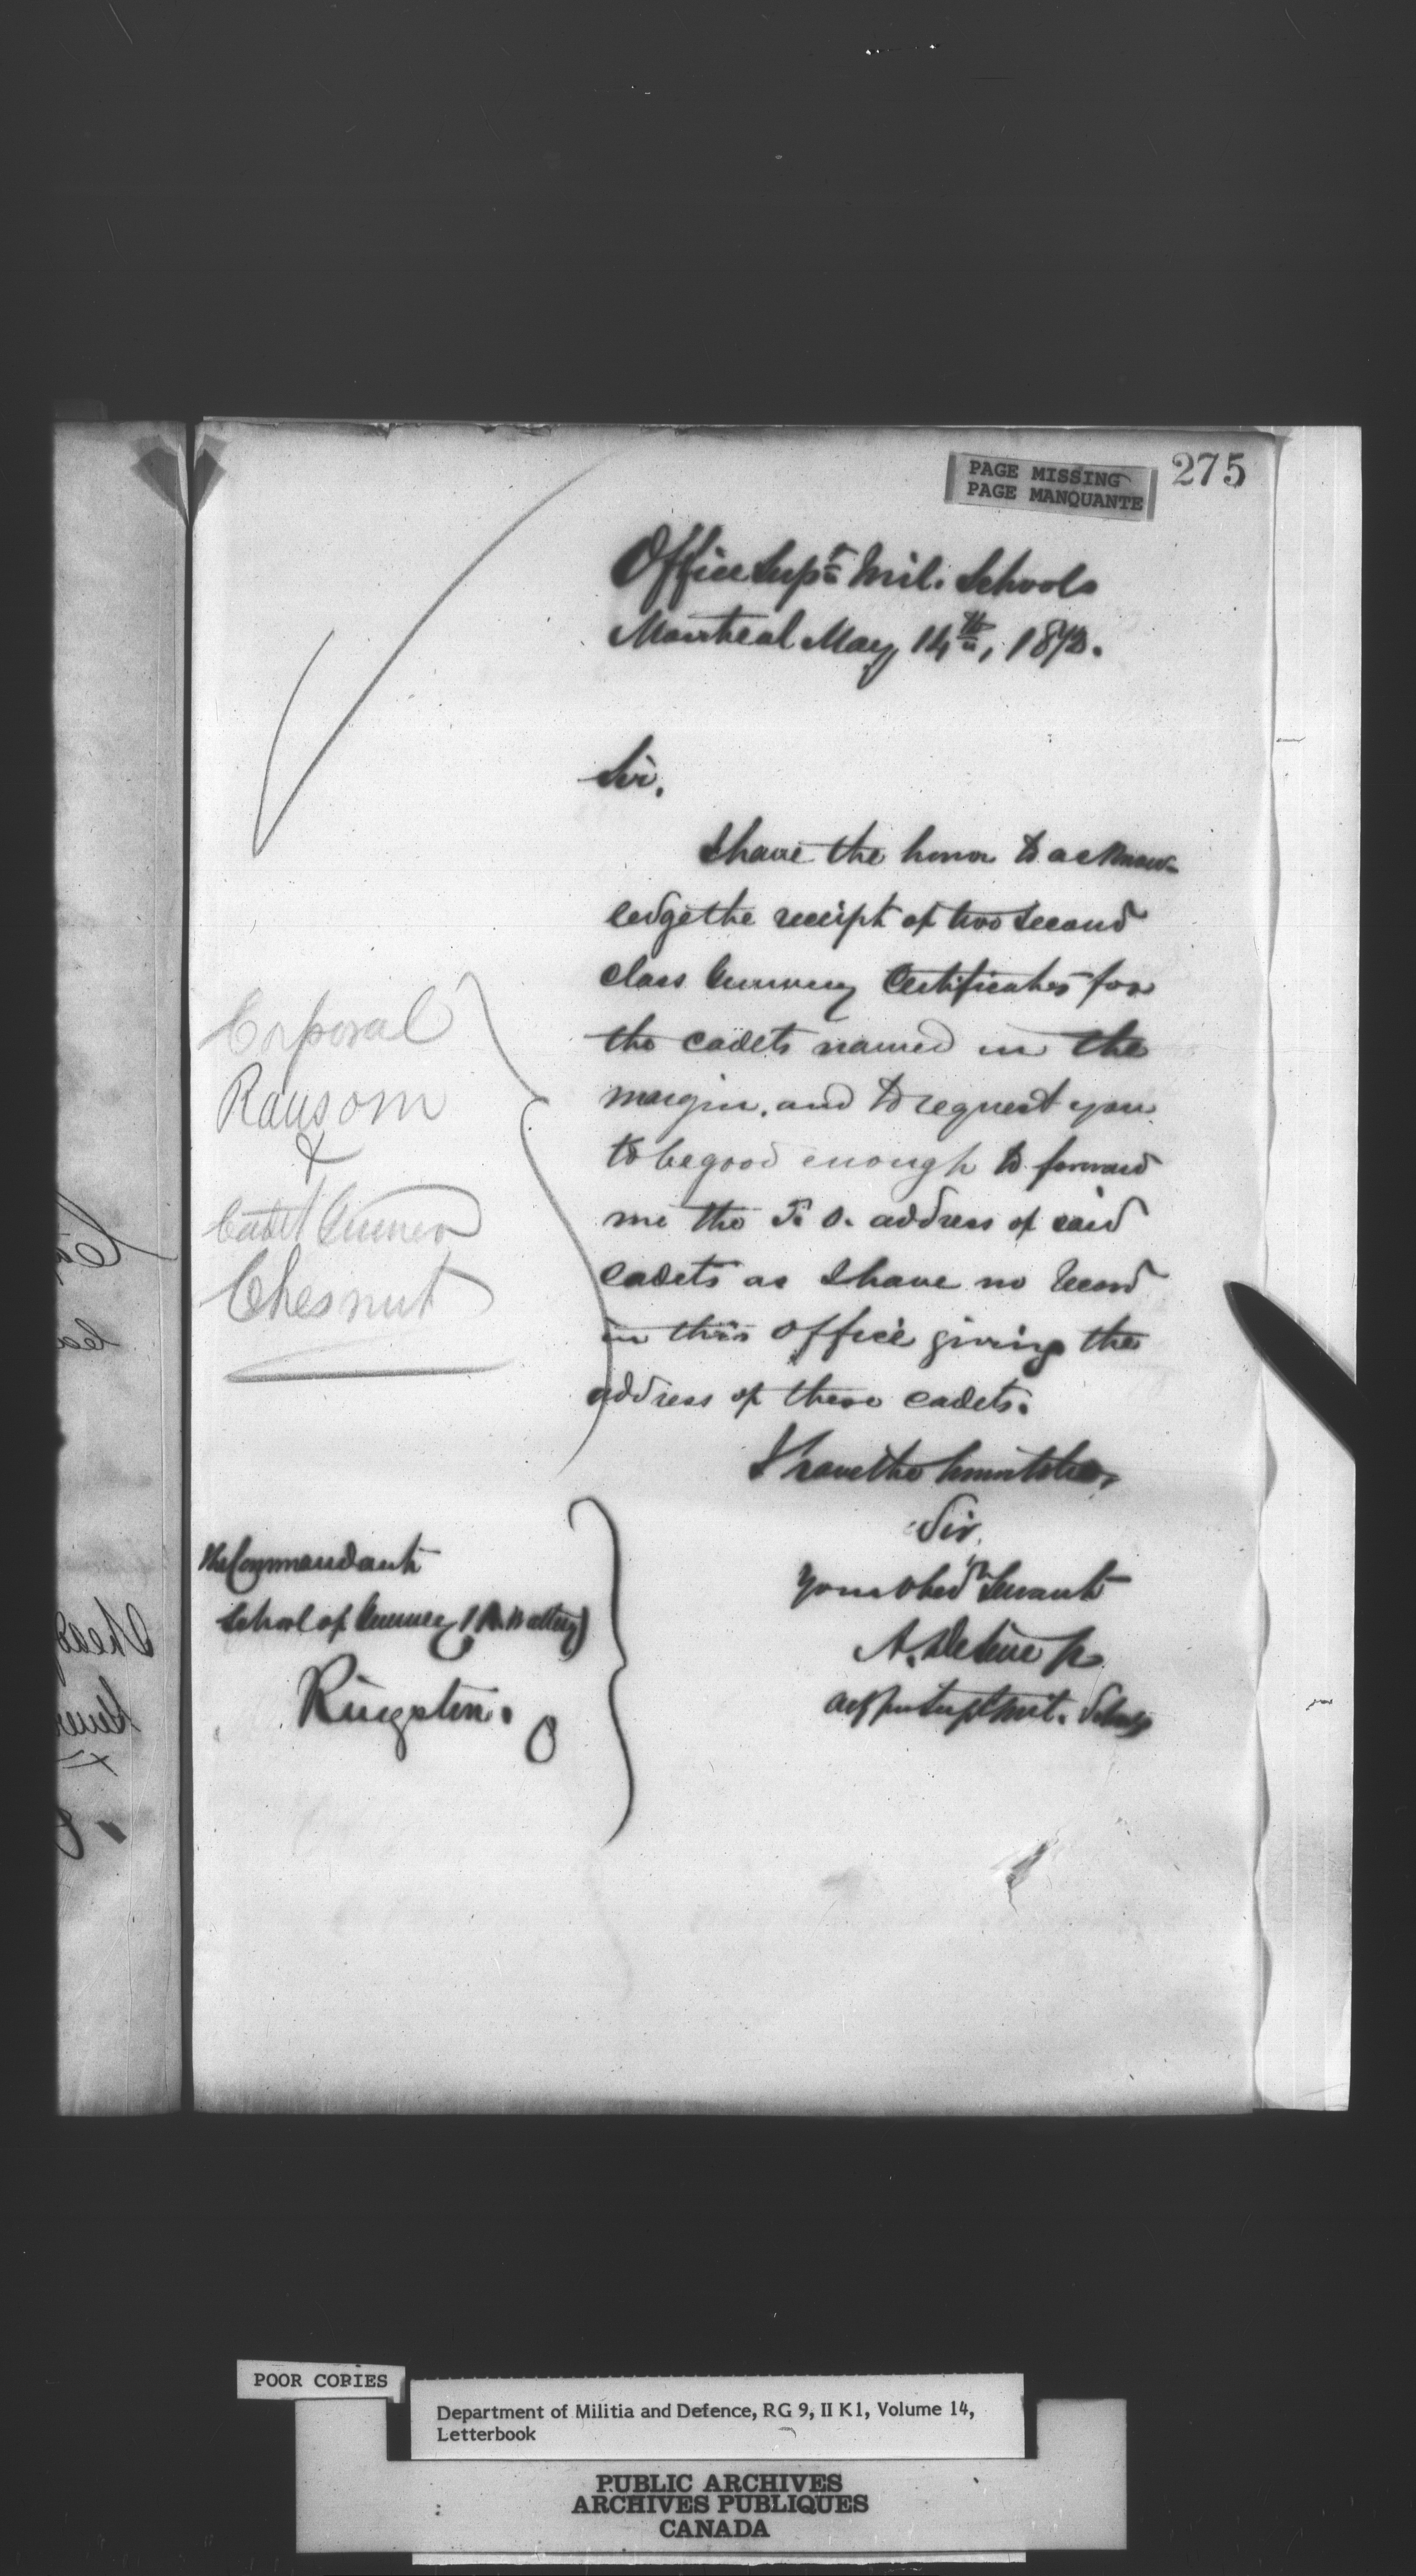 PAGE MISSING
PAGE MANQUANTE
275
Office Supt Mil. Schools
Montreal May 14th, 187
Sir,
I have the honor to acknow-
ledge the receipt of two second
class Gunnery Certificates for
the cadets named in the
margin, and to request you
to be good enough to forward
me the P. O. address of said
cadets as I have no record
in this office giving the
address of these cadets.
I have the honor to be,
Sir,
Your Obedt Servant
A.
Supt Mil. Schools
Corporal
Ransom
&
Cadet Gunner
Chesnut
The Commandant
School of Gunnery (A. Battery)
Kingston. O
POOR COPIES
Department of Militia and Defence, RG 9, II K1, Volume 14,
Letterbook
PUBLIC ARCHIVES
ARCHIVES PUBLIQUES
CANADA